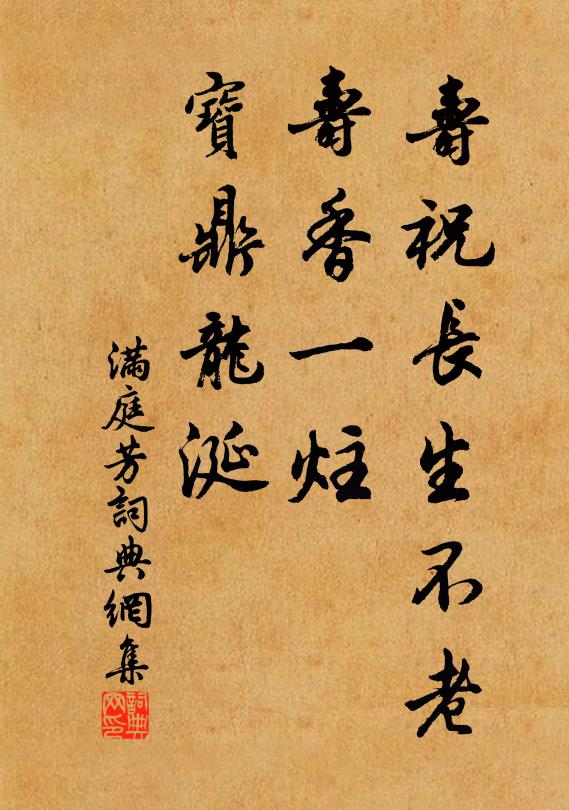 壽祝長生不老
壽香一炷
寶鼎龍涎
滿庭芳詞典網集
詞典网印